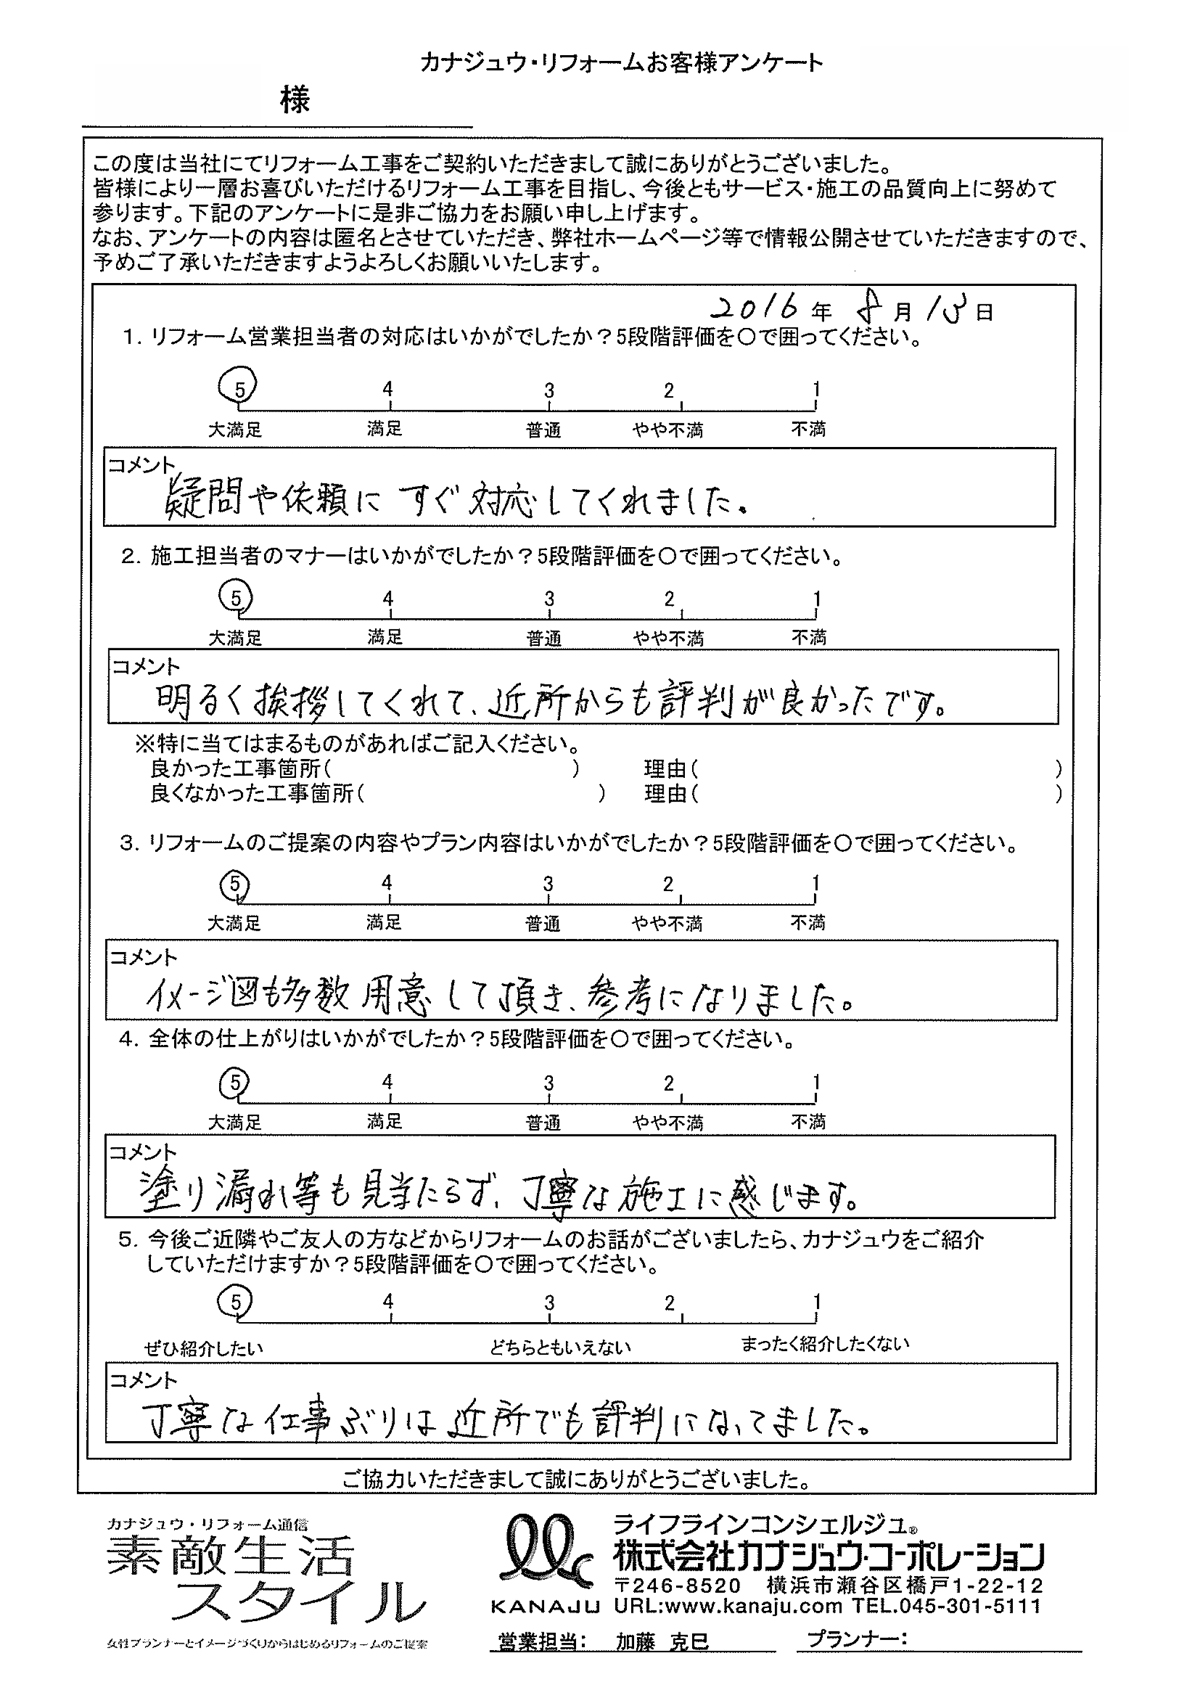 カナジュウ・リフォームお客様アンケート
様
この度は当社にてリフォーム工事をご契約いただきまして誠にありがとうございました。
皆様により一層お喜びいただけるリフォーム工事を目指し、今後ともサービス・施工の品質向上に努めて
参ります。下記のアンケートに是非ご協力をお願い申し上げます。
なお、アンケートの内容は匿名とさせていただき、弊社ホームページ等で情報公開させていただきますので、
予めご了承いただきますようよろしくお願いいたします。
2016年 8月13日
1．リフォーム営業担当者の対応はいかがでしたか？5段階評価を〇で囲ってください。
5 4 3 2 1
大満足 満足 普通 やや不満 不満
コメント
疑問や依頼に すぐ対応してくれました。
2．施工担当者のマナーはいかがでしたか？5段階評価を〇で囲ってください。
5 4 3 2 1
大満足 満足 普通 やや不満 不満
コメント
明るく挨拶してくれて、近所からも評判が良かったです。
※特に当てはまるものがあればご記入ください。
良かった工事箇所（ ） 理由（ ）
良くなかった工事箇所（ ） 理由（ ）
3．リフォームのご提案の内容やプラン内容はいかがでしたか？5段階評価を〇で囲ってください。
5 4 3 2 1
大満足 満足 普通 やや不満 不満
コメント
イメージ図も多数用意して頂き、参考になりました。
4．全体の仕上がりはいかがでしたか？5段階評価を〇で囲ってください。
5 4 3 2 1
大満足 満足 普通 やや不満 不満
コメント
塗り漏れ等も見当たらず、丁寧な施工に感じます。
5．今後ご近隣やご友人の方などからリフォームのお話がございましたら、カナジュウをご紹介
していただけますか？5段階評価を〇で囲ってください。
5 4 3 2 1
ぜひ紹介したい どちらともいえない まったく紹介したくない
コメント
丁寧な仕事ぶりは近所でも評判になってました。
ご協力いただきまして誠にありがとうございました。
カナジュウ・リフォーム通信
素敵生活
スタイル
女性プランナーとイメージづくりからはじめるリフォームのご提案
KANAJU
ライフラインコンシェルジュ®
株式会社カナジュウ・コーポレーション
〒246-8520 横浜市瀬谷区橋戸1-22-12
URL:www.kanaju.com TEL.045-301-5111
営業担当： 加藤 克巳 プランナー：